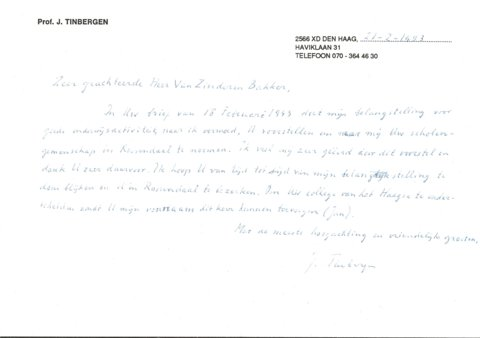 Prof. J. TINBERGEN
2566 XD DEN HAAG, 21-2-1993
HAVIKLAAN 31
TELEFOON 070 - 364 46 30
Zeer geachte Heer Van Zinderen Bakker,
In Uw brief van 18 Februari 1993 doet mijn belangstelling voor
goede onderwijsactiviteit naar ik verwoed, U voorstellen om naar mij Uw scholen-
gemeenschap in Rosendaal te noemen. Ik voel mij zeer geëerd door dit voorstel en
dank U zeer daarvoor. Ik hoop U van tijd tot tijd van mijn belangstelling te
doen blijken en U in Rosendaal te bezoeken. Om die college van het Haagse te onder-
scheiden zoudt U mijn voornaam dit keer kunnen toevoegen (Jan).
Met de meeste hoogachting en vriendelijke groeten,
J. Tinbergen